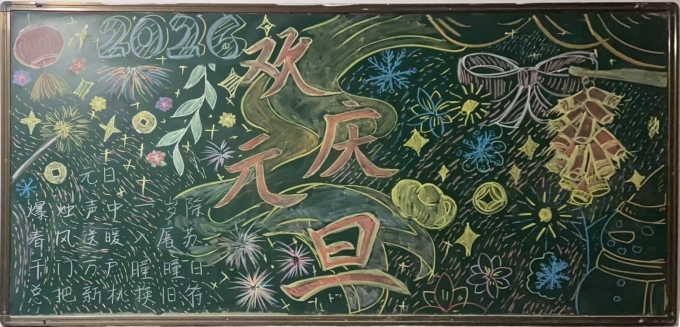 2026
欢庆
元旦
元日
爆烛声中一岁除
春风送暖入屠苏
千门万户瞳瞳日
总把新桃换旧符